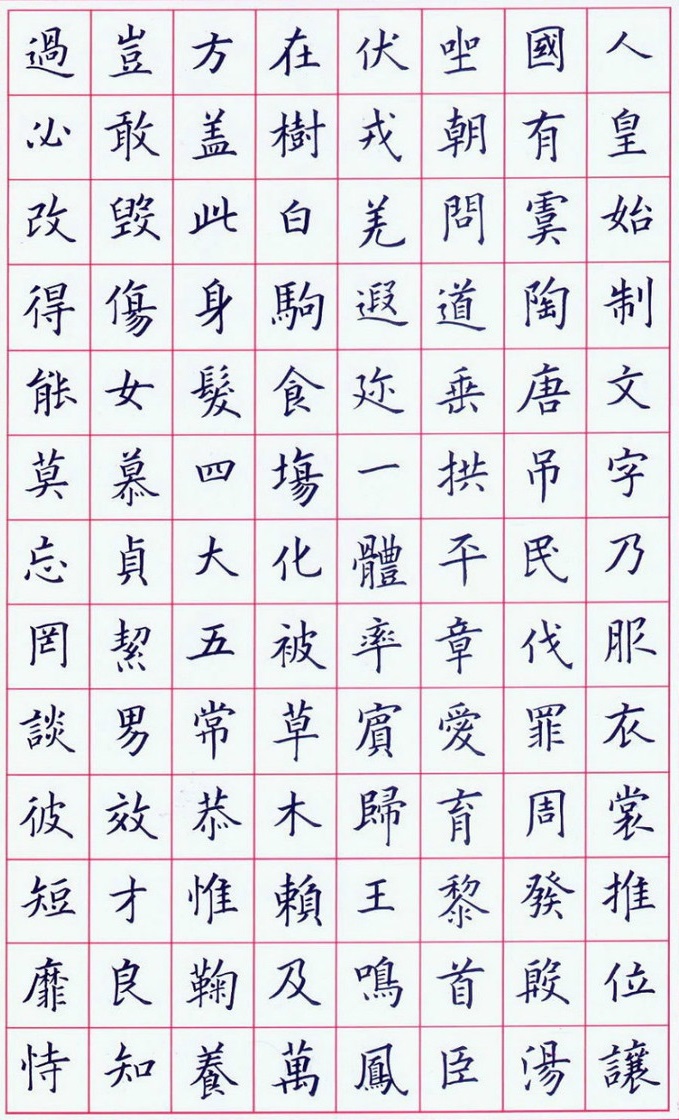 人皇始制文字乃服衣裳推位讓
國有虞陶唐吊民伐罪周發殷湯
坐朝問道垂拱平章愛育黎首臣
伏戎羌遐迩一體率賓歸王鳴鳳
在樹白駒食場化被草木賴及萬
方盖此身髮四大五常恭惟鞠養
豈敢毀傷女慕貞絜男效才良知
過必改得能莫忘罔談彼短靡恃